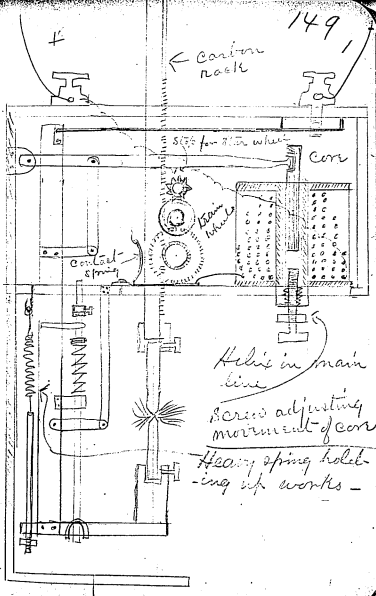 149
+
1
Carbon
rack
Stop for Star wheel
Core
Train
Wheels
Contact-
Spring
Helix in main
line
Screw adjusting
movement of core
Heavy spring hold-
-ing up works -